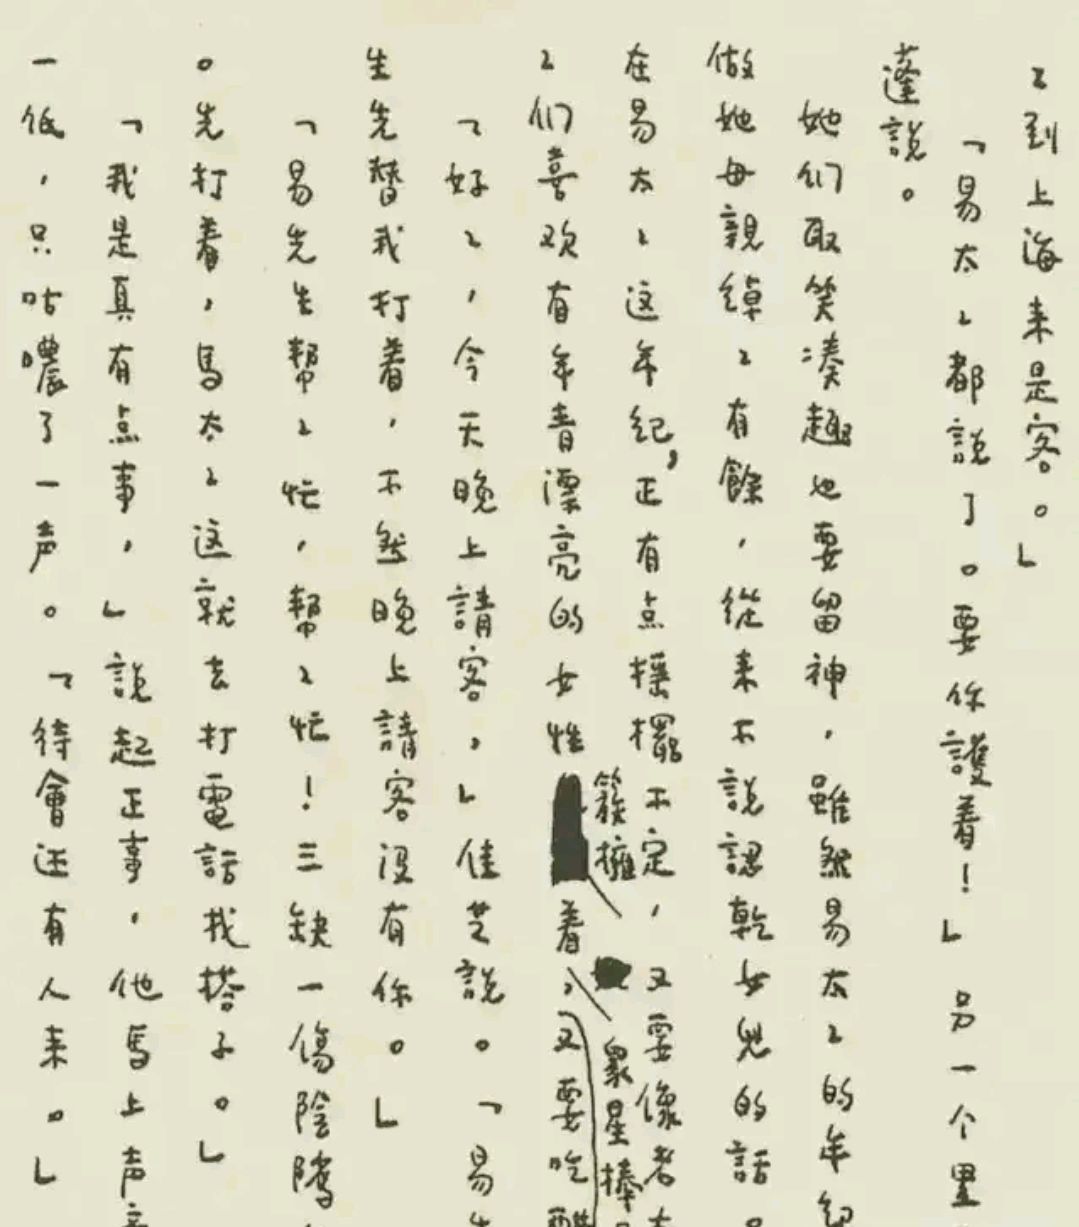 々到上海来是客。」
「易太々都説了。要你護着！」另一个黑
蓬説。
她们取笑凑趣也要留神，雖然易太々的年紀
做她母親綽々有餘，從来不説認乾女兒的話
在易太々这年纪，正有点摇擺不定，又要像老太
簇擁
眾星捧
々们喜欢有年青漂亮的女性着，又要吃醋
「好々，今天晚上請客，」佳芝説。「易先
生先替我打着，不然晚上請客没有你。」
「易先生幫々忙，幫々忙！三缺一傷陰隲
。先打着，馬太々这就去打電話找搭子。」
「我是真有点事，」説起正事，他馬上声音
一低，只咕噥了一声。「待會还有人来。」